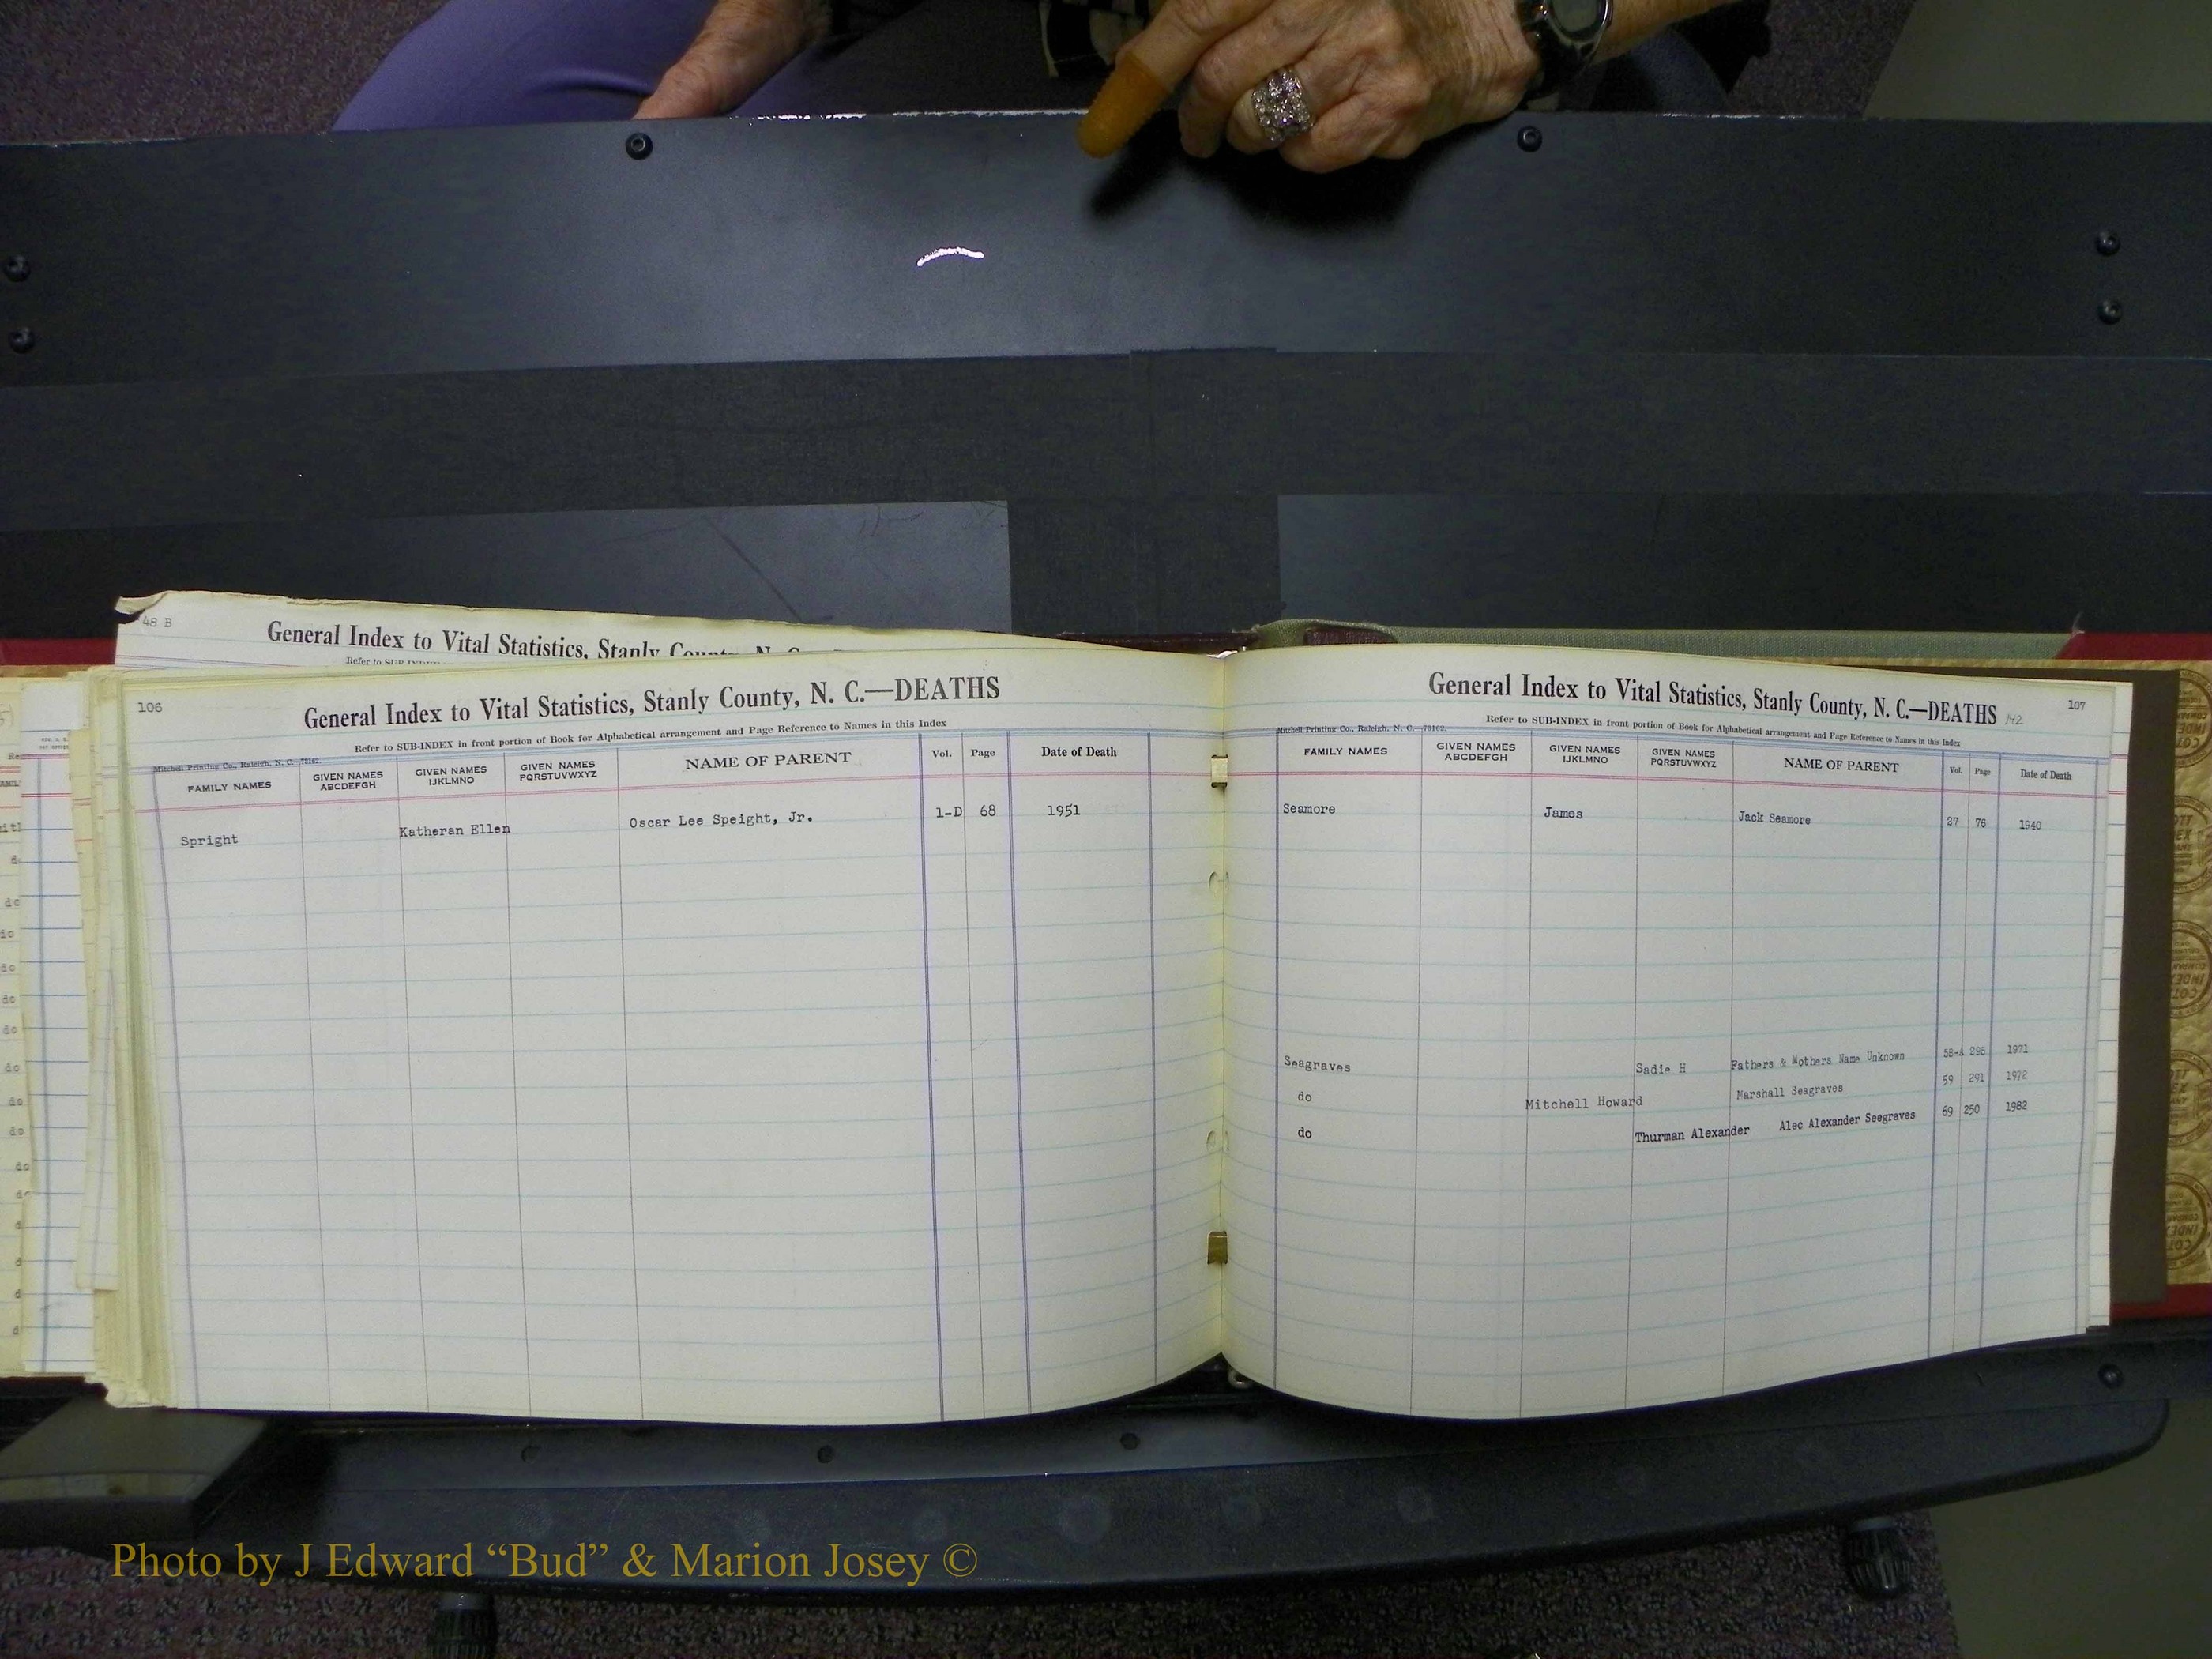 48 B
General Index to Vital Statistics, Stanly County, N. C.
Refer to SUB-INDEX
106
General Index to Vital Statistics, Stanly County, N. C.—DEATHS
Refer to SUB-INDEX in front portion of Book for Alphabetical arrangement and Page Reference to Names in this Index
Mitchell Printing Co., Raleigh, N. C.—73162
FAMILY NAMES GIVEN NAMES ABCDEFGH GIVEN NAMES IJKLMNO GIVEN NAMES PQRSTUVWXYZ NAME OF PARENT Vol. Page Date of Death
Spright Katheran Ellen Oscar Lee Speight, Jr. 1-D 68 1951
107
General Index to Vital Statistics, Stanly County, N. C.—DEATHS 142
Refer to SUB-INDEX in front portion of Book for Alphabetical arrangement and Page Reference to Names in this Index
Mitchell Printing Co., Raleigh, N. C.—73162
FAMILY NAMES GIVEN NAMES ABCDEFGH GIVEN NAMES IJKLMNO GIVEN NAMES PQRSTUVWXYZ NAME OF PARENT Vol. Page Date of Death
Seamore James Jack Seamore 27 76 1940
Seagraves Sadie H Fathers & Mothers Name Unknown 58-A 295 1971
do Mitchell Howard Marshall Seagraves 59 291 1972
do Thurman Alexander Alec Alexander Seegraves 69 250 1982
Photo by J Edward “Bud” & Marion Josey ©